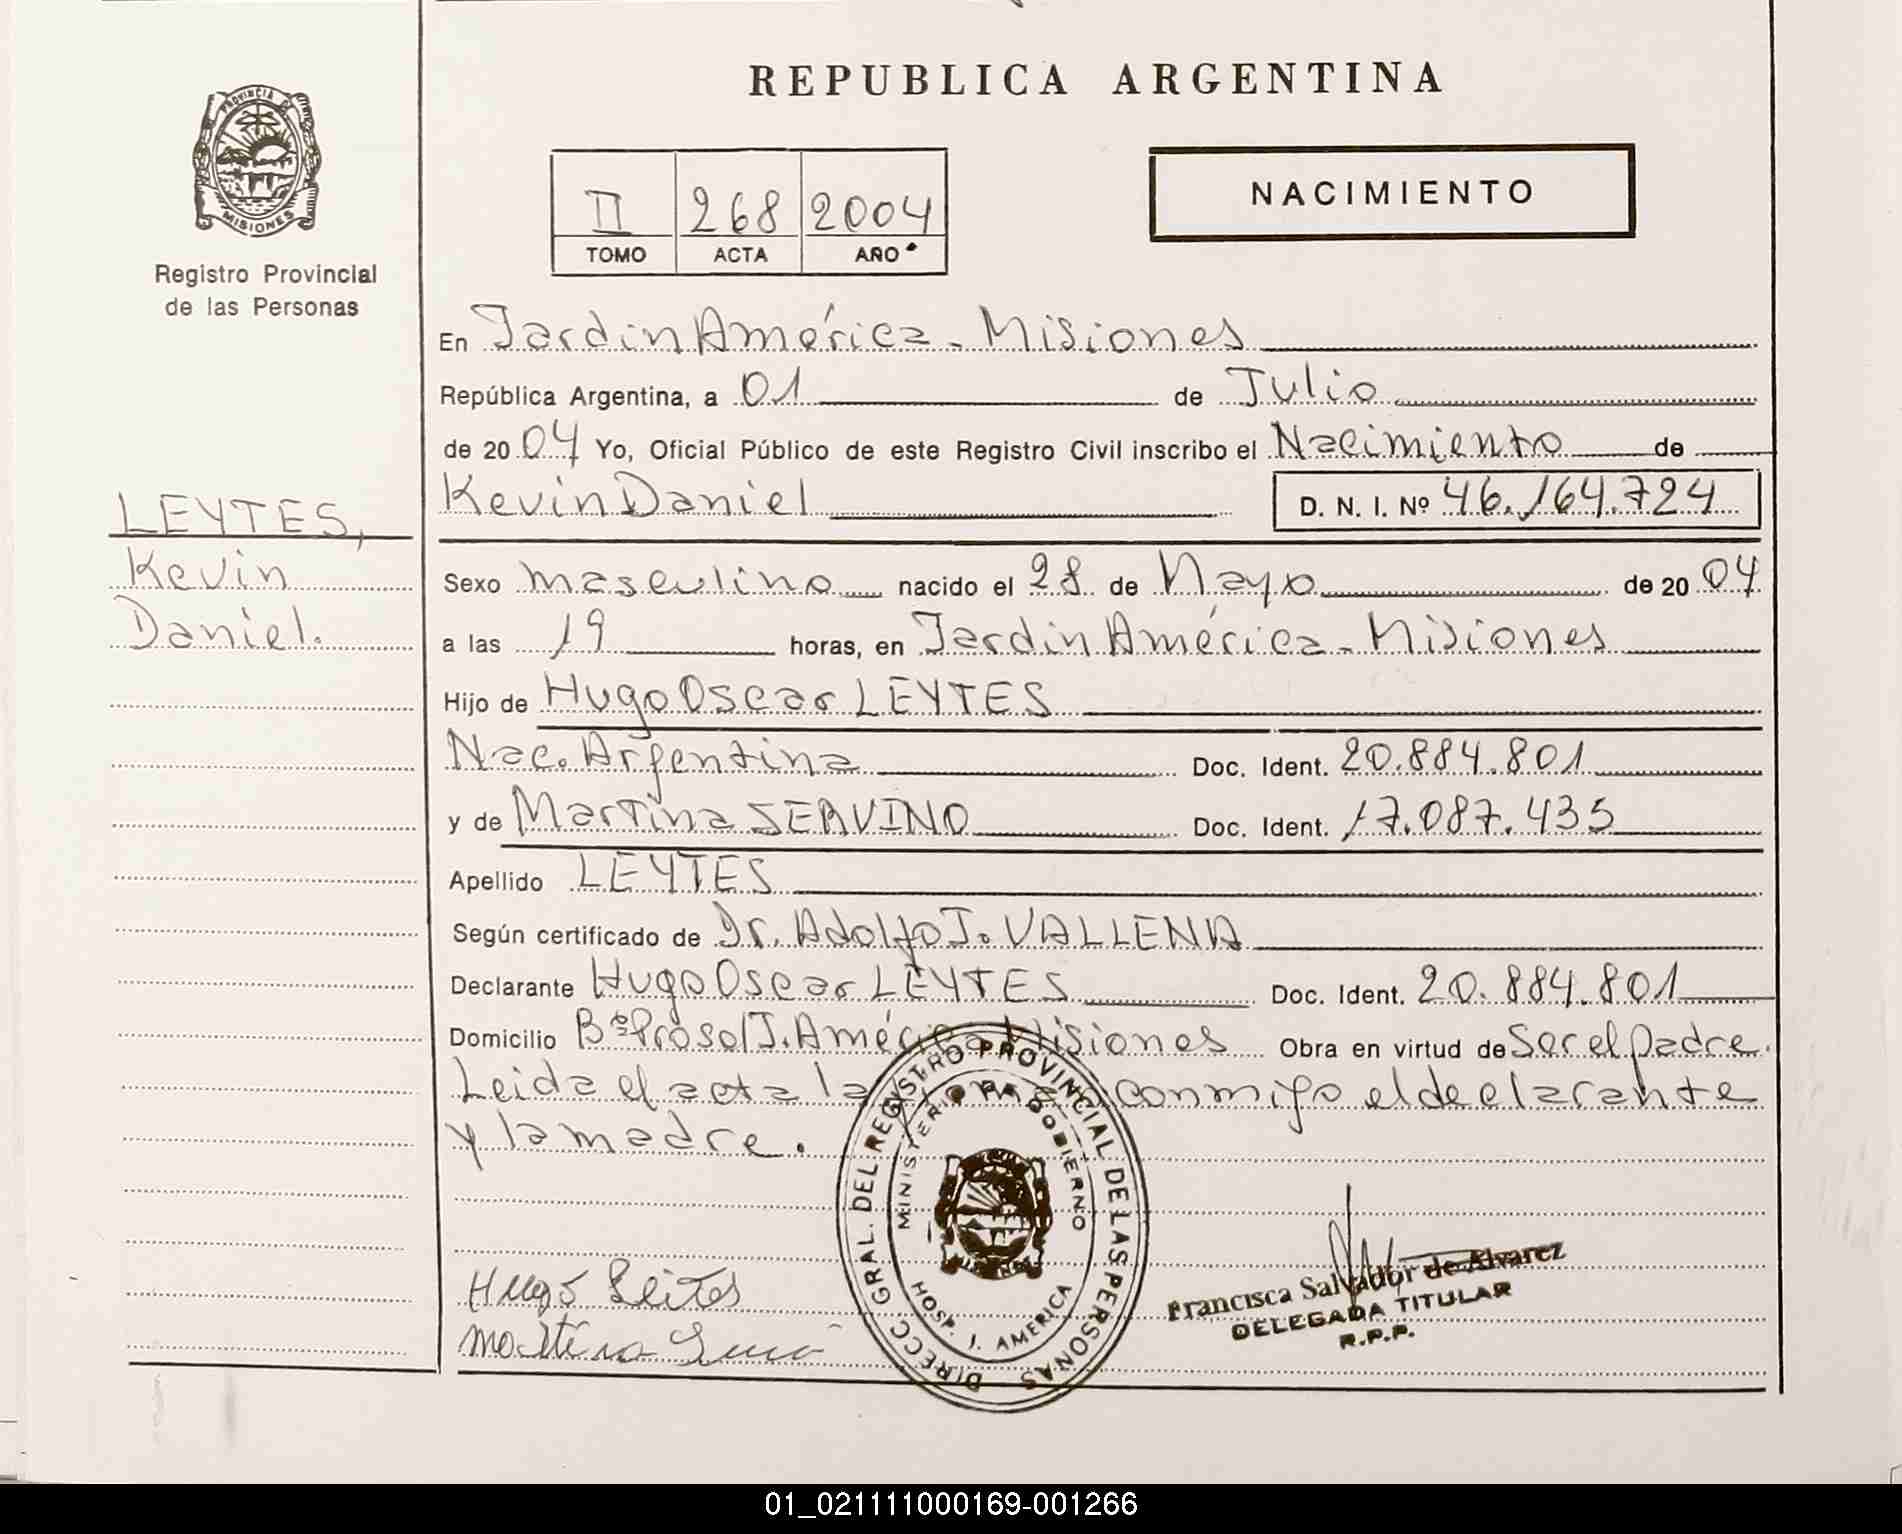 REPUBLICA ARGENTINA
PROVINCIA DE
MISIONES
Registro Provincial
de las Personas
II 268 2004
TOMO ACTA AÑO
NACIMIENTO
En Jardin América - Misiones
República Argentina, a 01 de Julio
de 2004 Yo, Oficial Público de este Registro Civil inscribo el Nacimiento de
Kevin Daniel D. N. I. Nº 46.164.724
LEYTES,
Kevin
Daniel.
Sexo masculino nacido el 28 de Mayo de 2004
a las 19 horas, en Jardin América - Misiones
Hijo de Hugo Oscar LEYTES
Nac. Argentina Doc. Ident. 20.884.801
y de Martina SERVINO Doc. Ident. 17.087.435
Apellido LEYTES
Según certificado de Dr. Adolfo J. VALLENA
Declarante Hugo Oscar LEYTES Doc. Ident. 20.884.801
Domicilio Bº Prosol J. América Misiones Obra en virtud de Ser el padre.
Leida el acta la conmigo el declarante
y la madre.
DIRECC GRAL. DEL REGISTRO PROVINCIAL DE LAS PERSONAS
MINISTERIO DE GOBIERNO
HOSP. J. AMERICA
Hugo Leites
Martina
Francisca Salvador de Alvarez
DELEGADA TITULAR
R.P.P.
01_021111000169-001266